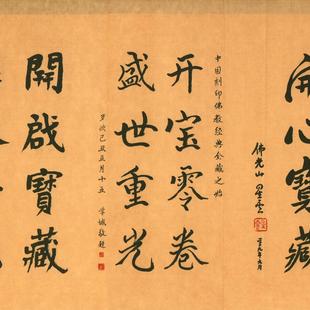 開心寶藏
佛光山 星雲
中国刻印佛教经典全藏之始
开宝零卷
盛世重光
岁次己丑五月十五 学诚敬题
開啟寶藏